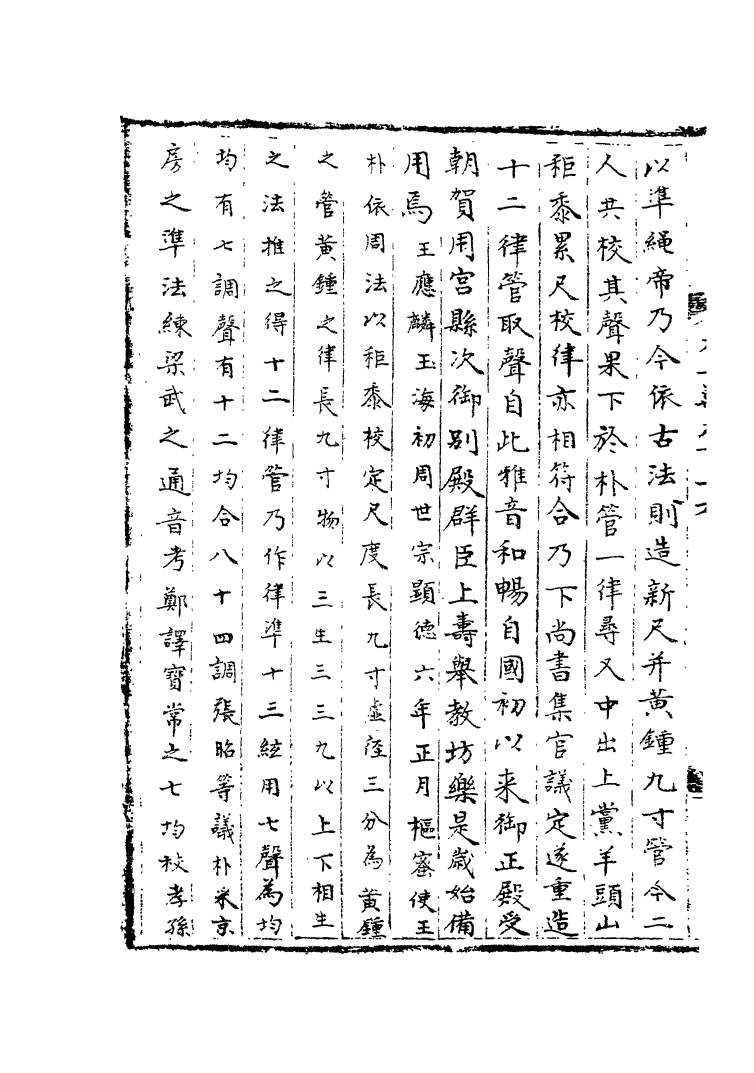 以準繩帝乃令依古法則造新尺并黄鍾九寸管令二
人共校其聲果下於朴管一律尋又中出上黨羊頭山
秬黍累尺校律亦相符合乃下尚書集官議定遂重造
十二律管取聲自此雅音和暢自國初以来御正殿受
朝賀用宫縣次御别殿群臣上壽舉教坊樂是歲始備
用焉王應麟玉海初周世宗顯徳六年正月樞密使王
朴依周法以秬黍校定尺度長九寸虚徑三分為黄鍾
之管黄鍾之律長九寸物以三生三三九以上下相生
之法推之得十二律管乃作律準十三絃用七聲為均
均有七調聲有十二均合八十四調張昭等議朴采京
房之準法練梁武之通音考鄭譯寳常之七均校孝孫